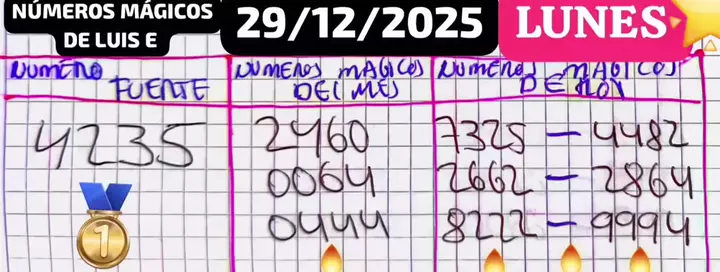 NÚMEROS MÁGICOS
DE LUIS E
29/12/2025
LUNES
NUMERO
FUENTE
NUMEROS MAGICOS
DEL MES
NUMEROS MAGICOS
DE HOY
4235
2460
0064
0444
7325 – 4482
2662 – 2864
8222 – 9994
1